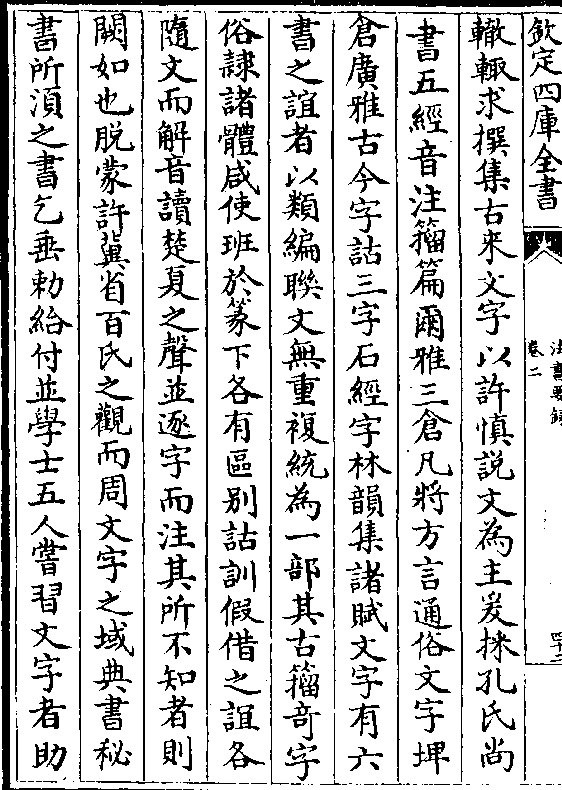 欽定四庫全書
法書要録
卷二
四十二
轍輙求撰集古來文字以許慎說文為主爰採孔氏尚
書五經音注籀篇爾雅三倉凡將方言通俗文字埤
倉廣雅古今字詁三字石經字林韻集諸賦文字有六
書之誼者以類編聯文無重複統為一部其古籀竒字
俗隸諸體咸使班於篆下各有區别詁訓假借之誼各
隨文而解音讀楚夏之聲並逐字而注其所不知者則
闕如也脱蒙許冀省百氏之觀而周文字之域典書秘
書所湏之書乞垂勅給付並學士五人嘗習文字者助